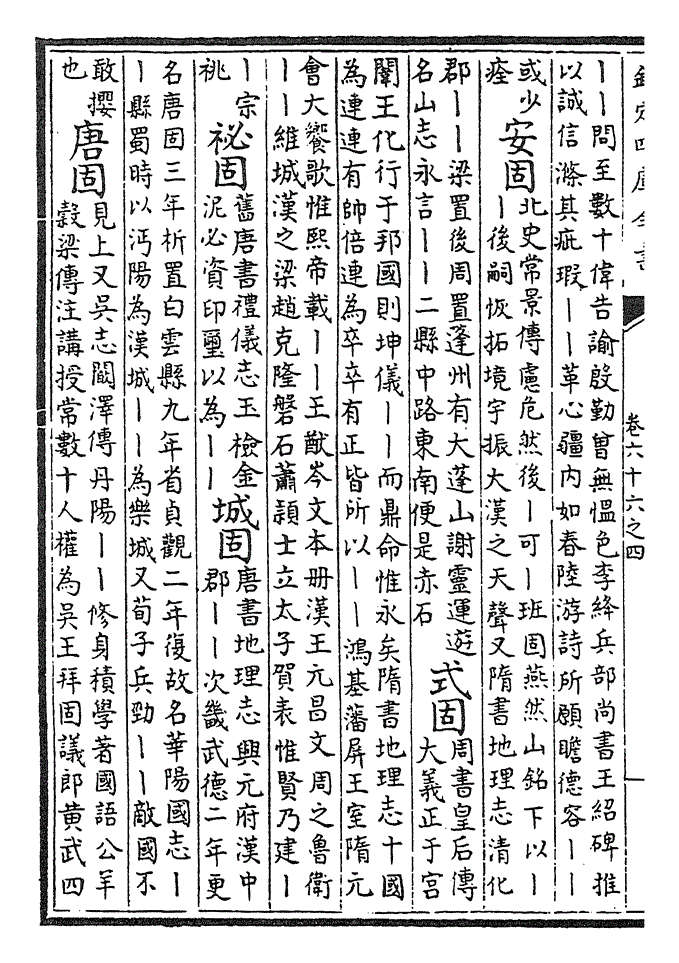 欽定四庫全書
卷六十六之四
丨丨問至數十偉告諭殷勤曾無愠色李絳兵部尚書王紹碑推
以誠信滌其疵瑕丨丨革心疆内如春陸游詩所願瞻德容丨丨
或少
痊
安固
北史常景傳慮危然後丨可丨班固燕然山銘下以丨
丨後嗣恢拓境宇振大漢之天聲又隋書地理志清化
郡丨丨梁置後周置蓬州有大蓬山謝靈運遊
名山志永言丨丨二縣中路東南便是赤石
式固
周書皇后傳
大義正于宫
闈王化行于邦國則坤儀丨丨而鼎命惟永矣隋書地理志十國
為連連有帥倍連為卒卒有正皆所以丨丨鴻基藩屏王室隋元
會大饗歌惟熙帝載丨丨王猷岑文本册漢王元昌文周之魯衛
丨丨維城漢之梁趙克隆磐石蕭頴士立太子賀表惟賢乃建丨
丨宗
祧
祕固
舊唐書禮儀志玉檢金
泥必資印璽以為丨丨
城固
唐書地理志興元府漢中
郡丨丨次畿武德二年更
名唐固三年析置白雲縣九年省貞觀二年復故名華陽國志丨
丨縣蜀時以沔陽為漢城丨丨為樂城又荀子兵勁丨丨敵國不
敢攖
也
唐固
見上又吳志闞澤傳丹陽丨丨修身積學著國語公羊
榖梁傳注講授常數十人權為吳王拜固議郎黄武四